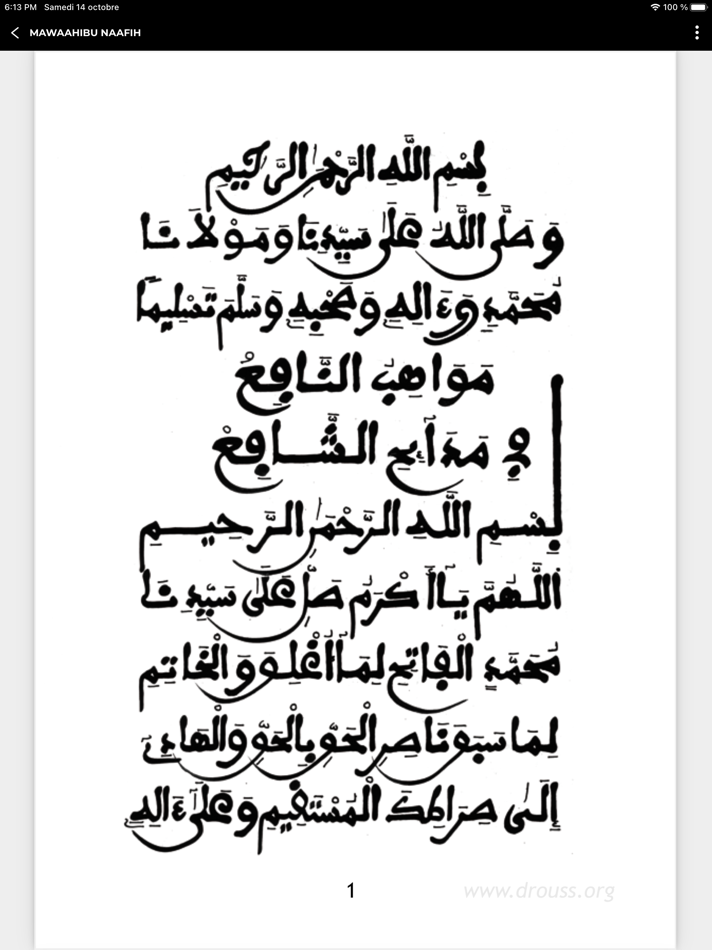 6:13 PM Samedi 14 octobre 100 %
MAWAAHIBU NAAFIH
بِسْمِ اللَّهِ الرَّحْمَٰنِ الرَّحِيمِ
وَصَلَّى اللَّهُ عَلَىٰ سَيِّدِنَا وَمَوْلَانَا
مُحَمَّدٍ وَءَالِهِ وَصَحْبِهِ وَسَلَّمَ تَسْلِيمًا
مَوَاهِبُ النَّافِعْ
فِي مَدَآئِحِ الشَّافِعْ
بِسْمِ اللَّهِ الرَّحْمَٰنِ الرَّحِيمِ
اللَّهُمَّ يَآ أَكْرَمُ صَلِّ عَلَىٰ سَيِّدِنَا
مُحَمَّدٍ الْفَاتِحِ لِمَآ أُغْلِقَ وَالْخَاتِمِ
لِمَا سَبَقَ نَاصِرِ الْحَقِّ بِالْحَقِّ وَالْهَادِي
إِلَىٰ صِرَاطِكَ الْمُسْتَقِيمِ وَعَلَىٰٓ ءَالِهِ
1
www.drouss.org